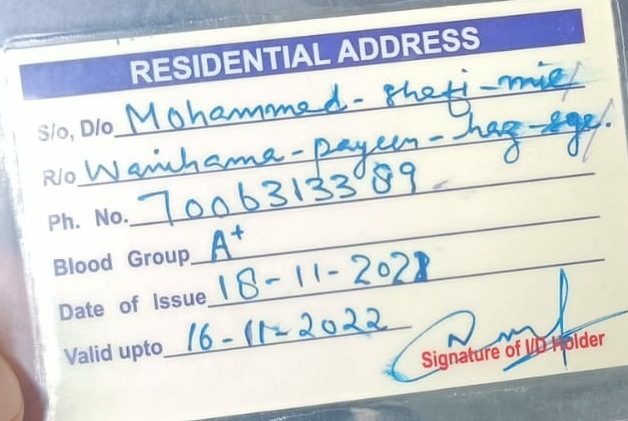 RESIDENTIAL ADDRESS
S/o, D/o Mohammed - Shafi - mir
R/o Wanihama - payeen - haz
Ph. No. 7006313389
Blood Group A+
Date of Issue 18-11-2021
Valid upto 16-11-2022
Signature of I/D Holder